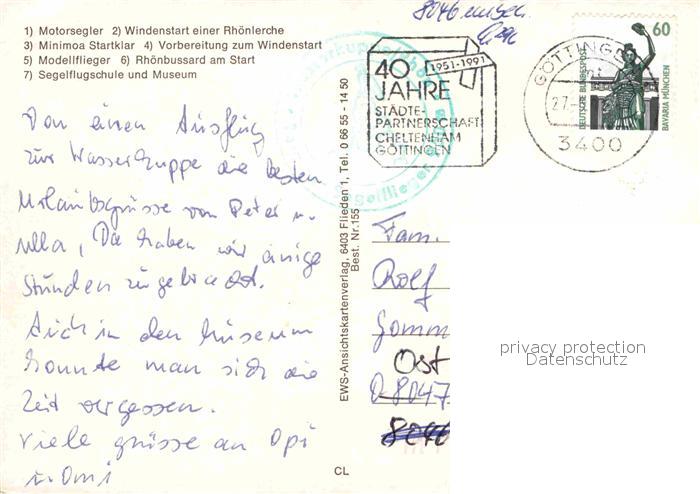 1) Motorsegler 2) Windenstart einer Rhönlerche
3) Minimoa Startklar 4) Vorbereitung zum Windenstart
5) Modellflieger 6) Rhönbussard am Start
7) Segelflugschule und Museum
Von einem Ausflug
zur Wasserkuppe die besten
Urlaubsgrüsse von Peter u.
Ulla, Da haben wir einige
Stunden zugebracht.
Auch in dem Museum
konnte man sich die
Zeit vergessen.
Viele grüsse an Opi
u. Omi
EWS-Ansichtskartenverlag, 6403 Flieden 1, Tel. 0 66 55 - 14 50
Best. Nr.155
CL
8046
1951-1991
40
JAHRE
STÄDTE-
PARTNERSCHAFT
CHELTENHAM
GÖTTINGEN
GÖTTINGEN
27.
3400
60
DEUTSCHE BUNDESPOST
BAVARIA MÜNCHEN
Fam.
Rolf
Gomm
Ost
O-8047
8046
privacy protection
Datenschutz